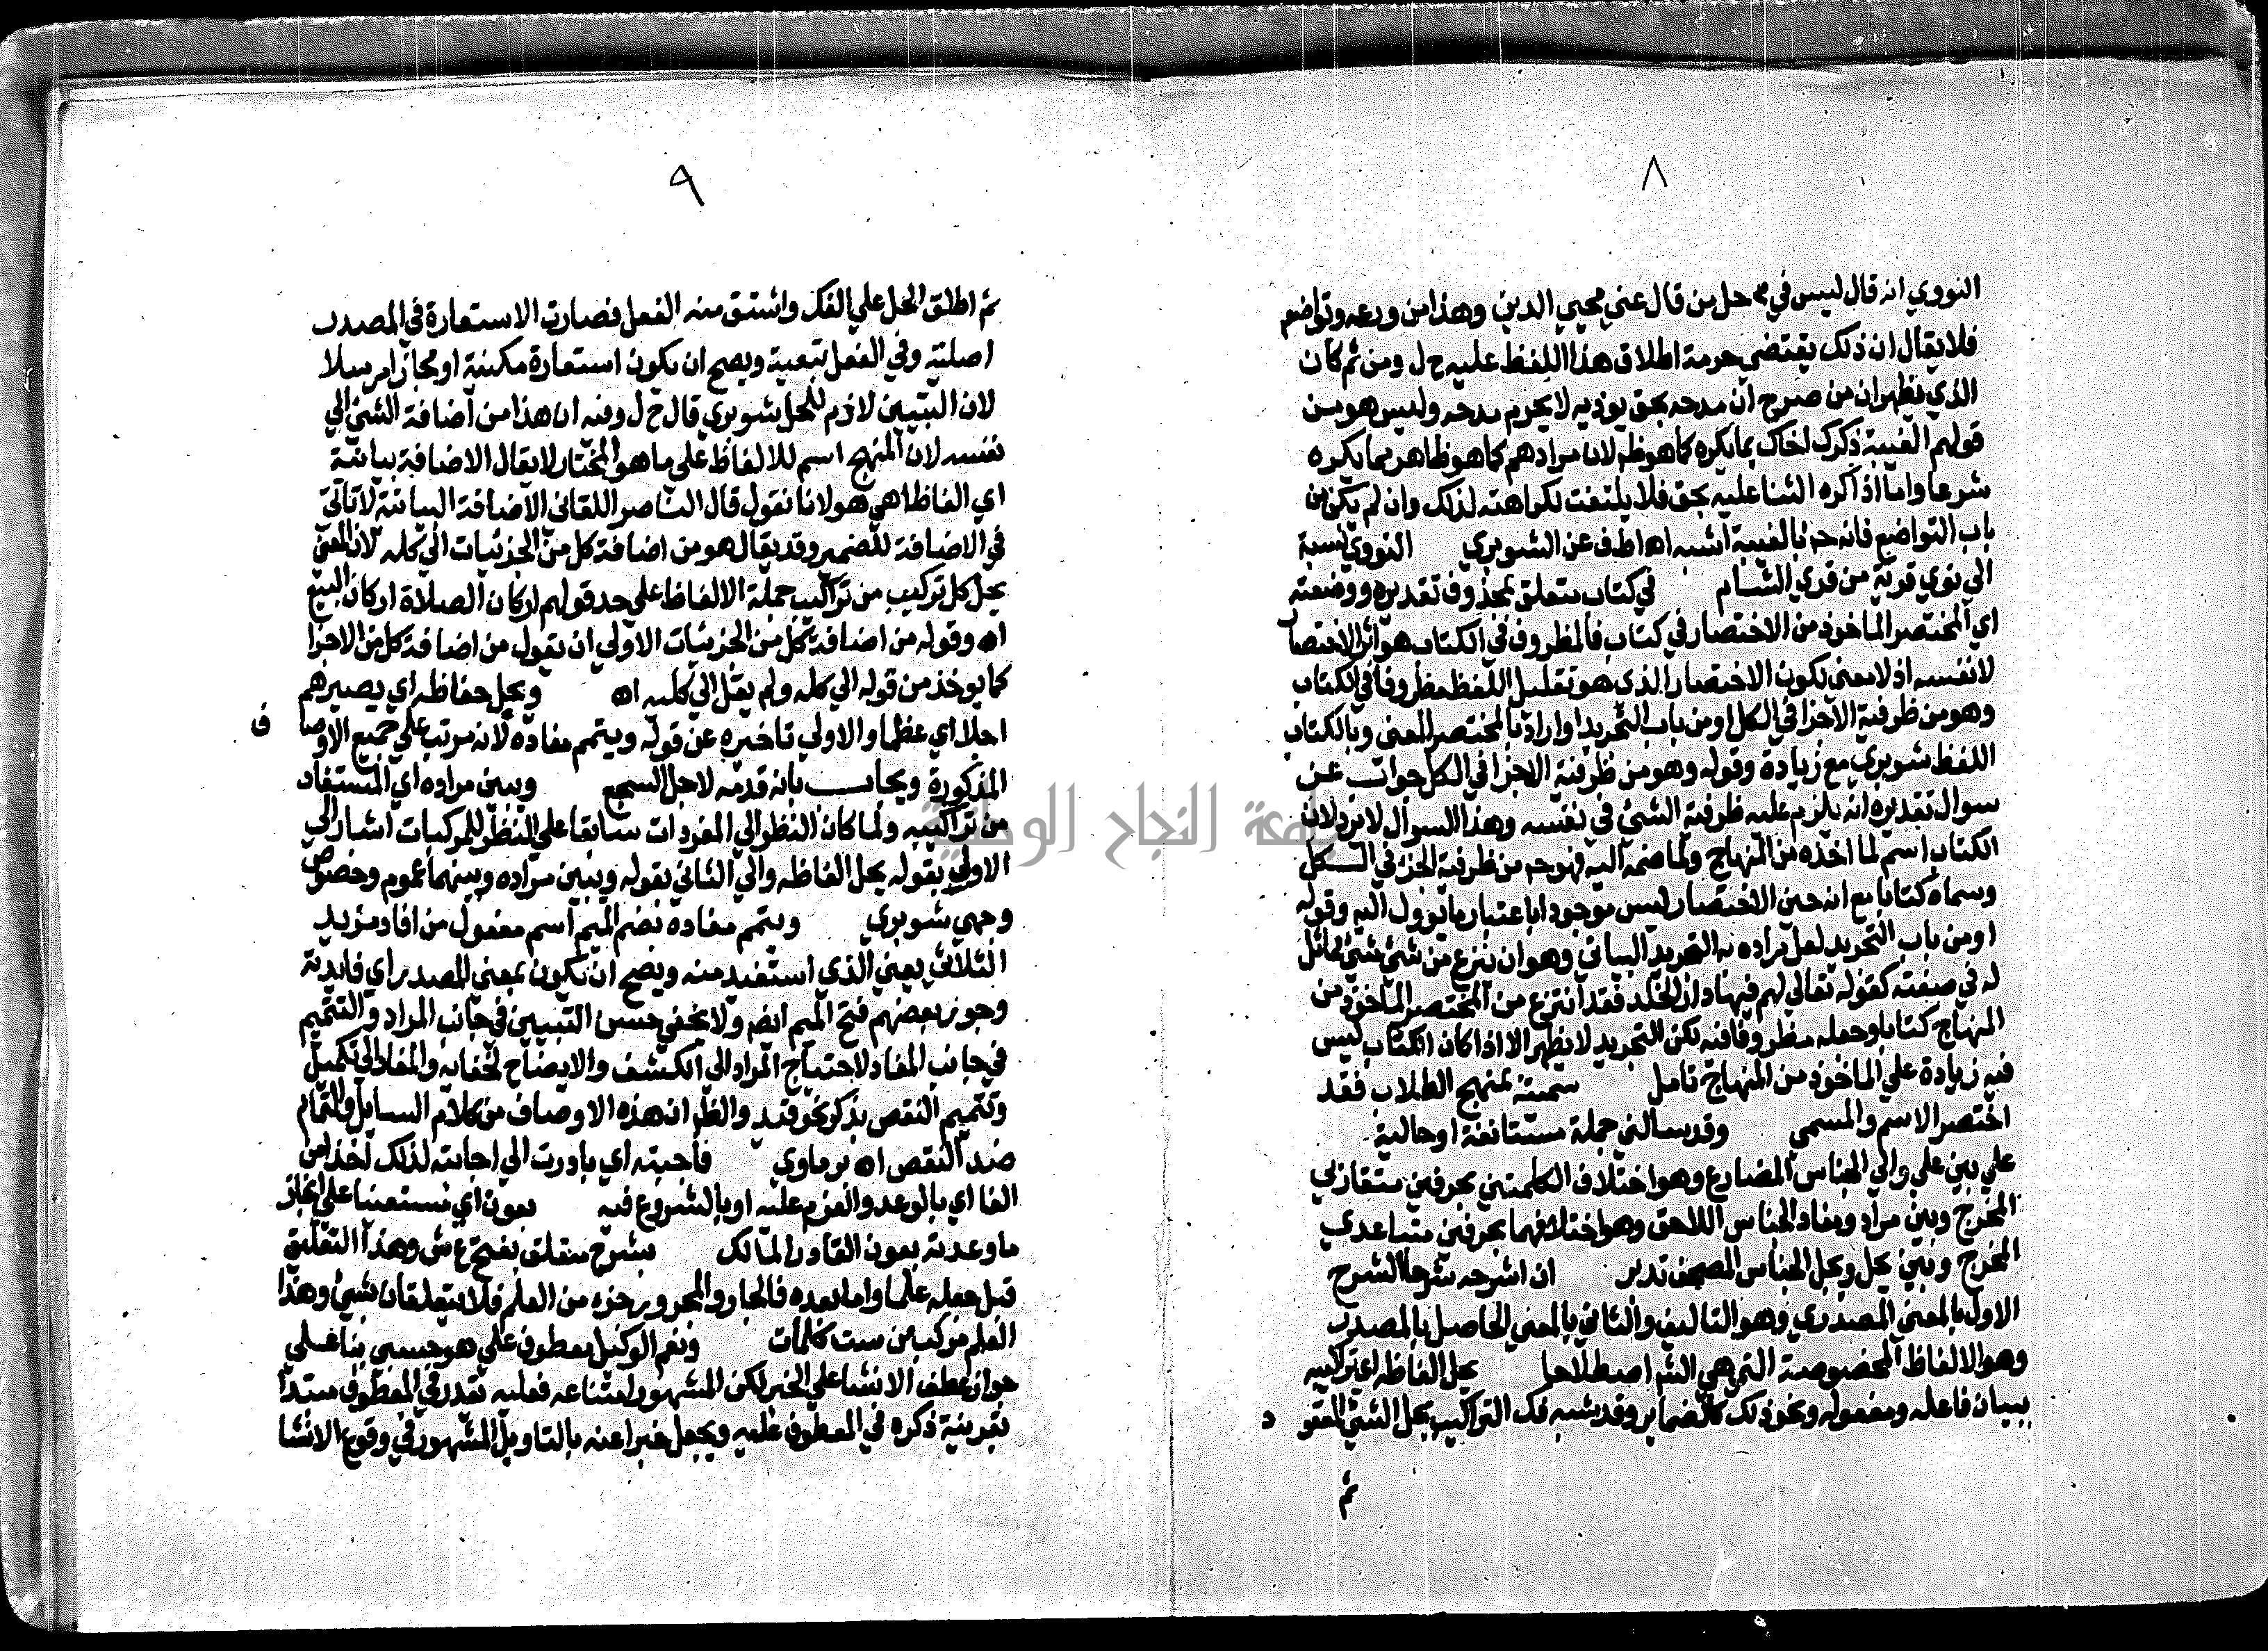 ٨
النووي انه قال ليس في حل من قال عني محيي الدين وهذا من ورعه وتواضع
فلا يقال ان ذلك يقتضي حرمة اطلاق هذا اللفظ عليه ح ل ومن ثم كان
الذي يظهر ان من صرح ان مدحه بحق يوذيه لا يحرم مدحه وليس هو من
قولهم الغيبة ذكرك اخاك بما يكره كما هو ظم لان مرادهم كما هو ظاهر بما يكره
شرعا واما اذا كره الثنا عليه بحق فلا يلتفت لكراهته لذلك وان لم يكن من
باب التواضع فانه ح بالغيبة اشبه اه اط ف عن الشوبري النووي نسبة
الى نوي قرية من قري الشام في كتاب متعلق بمحذوف تقديره ووضعته
اي المختصر الماخوذ من الاختصار في كتاب فالمظروف في الكتاب هو اثر الاختصار
لا نفسه اذ لا معنى لكون الاختصار الذي هو تقليل اللفظ مظروفا في الكتاب
وهو من ظرفية الاجزا في الكل او من باب التجريد او اراد بالمختصر المعنى وبالكتاب
اللفظ شوبري مع زيادة وقوله وهو من ظرفية الاجزا في الكل جواب عن
سوال تقديره انه يلزم عليه ظرفية الشئ في نفسه وهذا السوال لا يرد لان
الكتاب اسم لما اخذه من المنهاج ولما ضمه اليه فهو ح من ظرفية الجزء في الكل
وسماه كتابا مع انه حين الاختصار ليس موجودا باعتبار ما يوول اليه وقوله
او من باب التجريد لعل مراده به التجريد البياني وهو ان ينزع من شئ شئ مماثل
له في صفته كقوله تعالي لهم فيها دار الخلد فقد انتزع من المختصر الماخوذ من
المنهاج كتابا وجعله مظروفا فيه لكن التجريد لا يظهر الا اذا كان الكتاب ليس
فيه زيادة علي الماخوذ من المنهاج تامل سميته بمنهج الطلاب فقد
اختصر الاسم والمسمى وقد سالني جملة مستانفة او حالية
علي بين علي والي الجناس المضارع وهو اختلاف الكلمتين بحرفين متقاربي
المخرج وبين مراد ومفاد الجناس اللاحق وهو اختلافهما بحرفين متباعدي
المخرج وبين يحل ويجل الجناس المصحف تدبر ان اشرحه شرحا الشرح
الاول بالمعنى المصدري وهو التاليف والثاني بالمعني الحاصل بالمصدر
وهو الالفاظ المخصوصة التي هي الشرح اصطلاحا يحل الفاظه اي تراكيبه
ببيان فاعله ومفعوله ونحو ذلك كالضماير وقد شبه فك التراكيب بحل الشئ المعقود
ثم
٩
ثم اطلق الحل علي الفك واشتق منه الفعل فصارت الاستعارة في المصدر
اصلية وفي الفعل تبعية ويصح ان يكون استعارة مكنية او مجازا مرسلا
لان التبيين لازم للحل شوبري قال ح ل وفيه ان هذا من اضافة الشئ الي
نفسه لان المنهج اسم للالفاظ علي ما هو المختار لا يقال الاضافة بيانية
اي الفاظا هي هو لانا نقول قال الناصر اللقاني الاضافة البيانية لا تاتي
في الاضافة للضمير وقد يقال هو من اضافة كل من الجزئيات الي كله لان المعنى
يحل كل تركيب من تراكيب جملة الالفاظ علي حد قولهم اركان الصلاة اركان البيع
اه وقوله من اضافة كل من الجزئيات الاولي ان يقول من اضافة كل من الاجزا
كما يوخذ من قوله الي كله ولم يقل الي كليه اه ويجل حفاظه اي يصيرهم
اجلا اي عظما والاولي تاخيره عن قوله ويتمم مفاده لانه مرتب علي جميع الاوصاف
المذكورة ويجاب بانه قدمه لاجل السجع ويبين مراده اي المستفاد
من تراكيبه ولما كان النظر الي المفردات سابقا علي النظر للمركبات اشار الي
الاولي بقوله يحل الفاظه والي الثاني بقوله ويبين مراده وبينهما عموم وخصوص
وجهي شوبري ويتمم مفاده بضم الميم اسم مفعول من افاد مزيد
الثلاثي يعني الذي استفيد منه ويصح ان يكون بمعنى المصدر اي فايدته
وجوز بعضهم فتح الميم ايضم ولا يخفي حسن التبيين في جانب المراد والتتميم
في جانب المفاد لاحتياج المراد الي الكشف والايضاح لخفايه والمفاد الي تكميل
وتتميم النقص بذكر نحو قيد والظم ان هذه الاوصاف من كلام السايل والتمام
ضد النقص اه برماوي فاجبته اي بادرت الي اجابته لذلك اخذا من
الفا اي بالوعد والعزم عليه او بالشروع فيه بعون اي مستعينا علي انجاز
ما وعدته بعون القادر المالك بشرح متعلق بفتح ع ش وهذا التعليق
قبل جعله علما واما بعده فالجار والمجرور جزء من العلم فلا يتعلقان بشئ وهذا
العلم مركب من ست كلمات ونعم الوكيل معطوف علي هو حسبي بنا علي
جواز عطف الانشا علي الخبر لكن المشهور امتناعه فعليه يقدر في المعطوف مبتدا
بقرينة ذكره في المعطوف عليه ويجعل خبرا عنه بالتاويل المشهور في وقوع الانشا
جامعة النجاح الوطنية